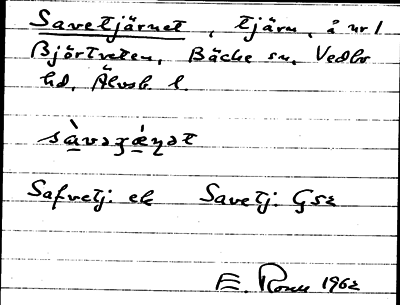 Savetjärnet, tjärn, å nr 1
Björtveten, Bäcke sn, Vedbo
hd, Älvsb. l.
Safvetj. ek Savetj. Gsä
E. Rosus 1962